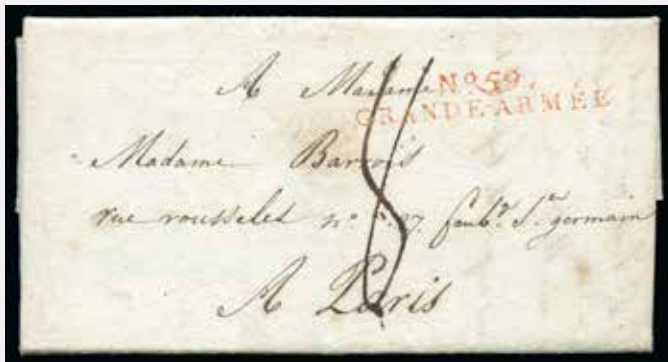 A Madame
No 59.
GRANDE-ARMÉE
Madame Barrois
rue rousselet no 27. faubg St germain
8
A Paris